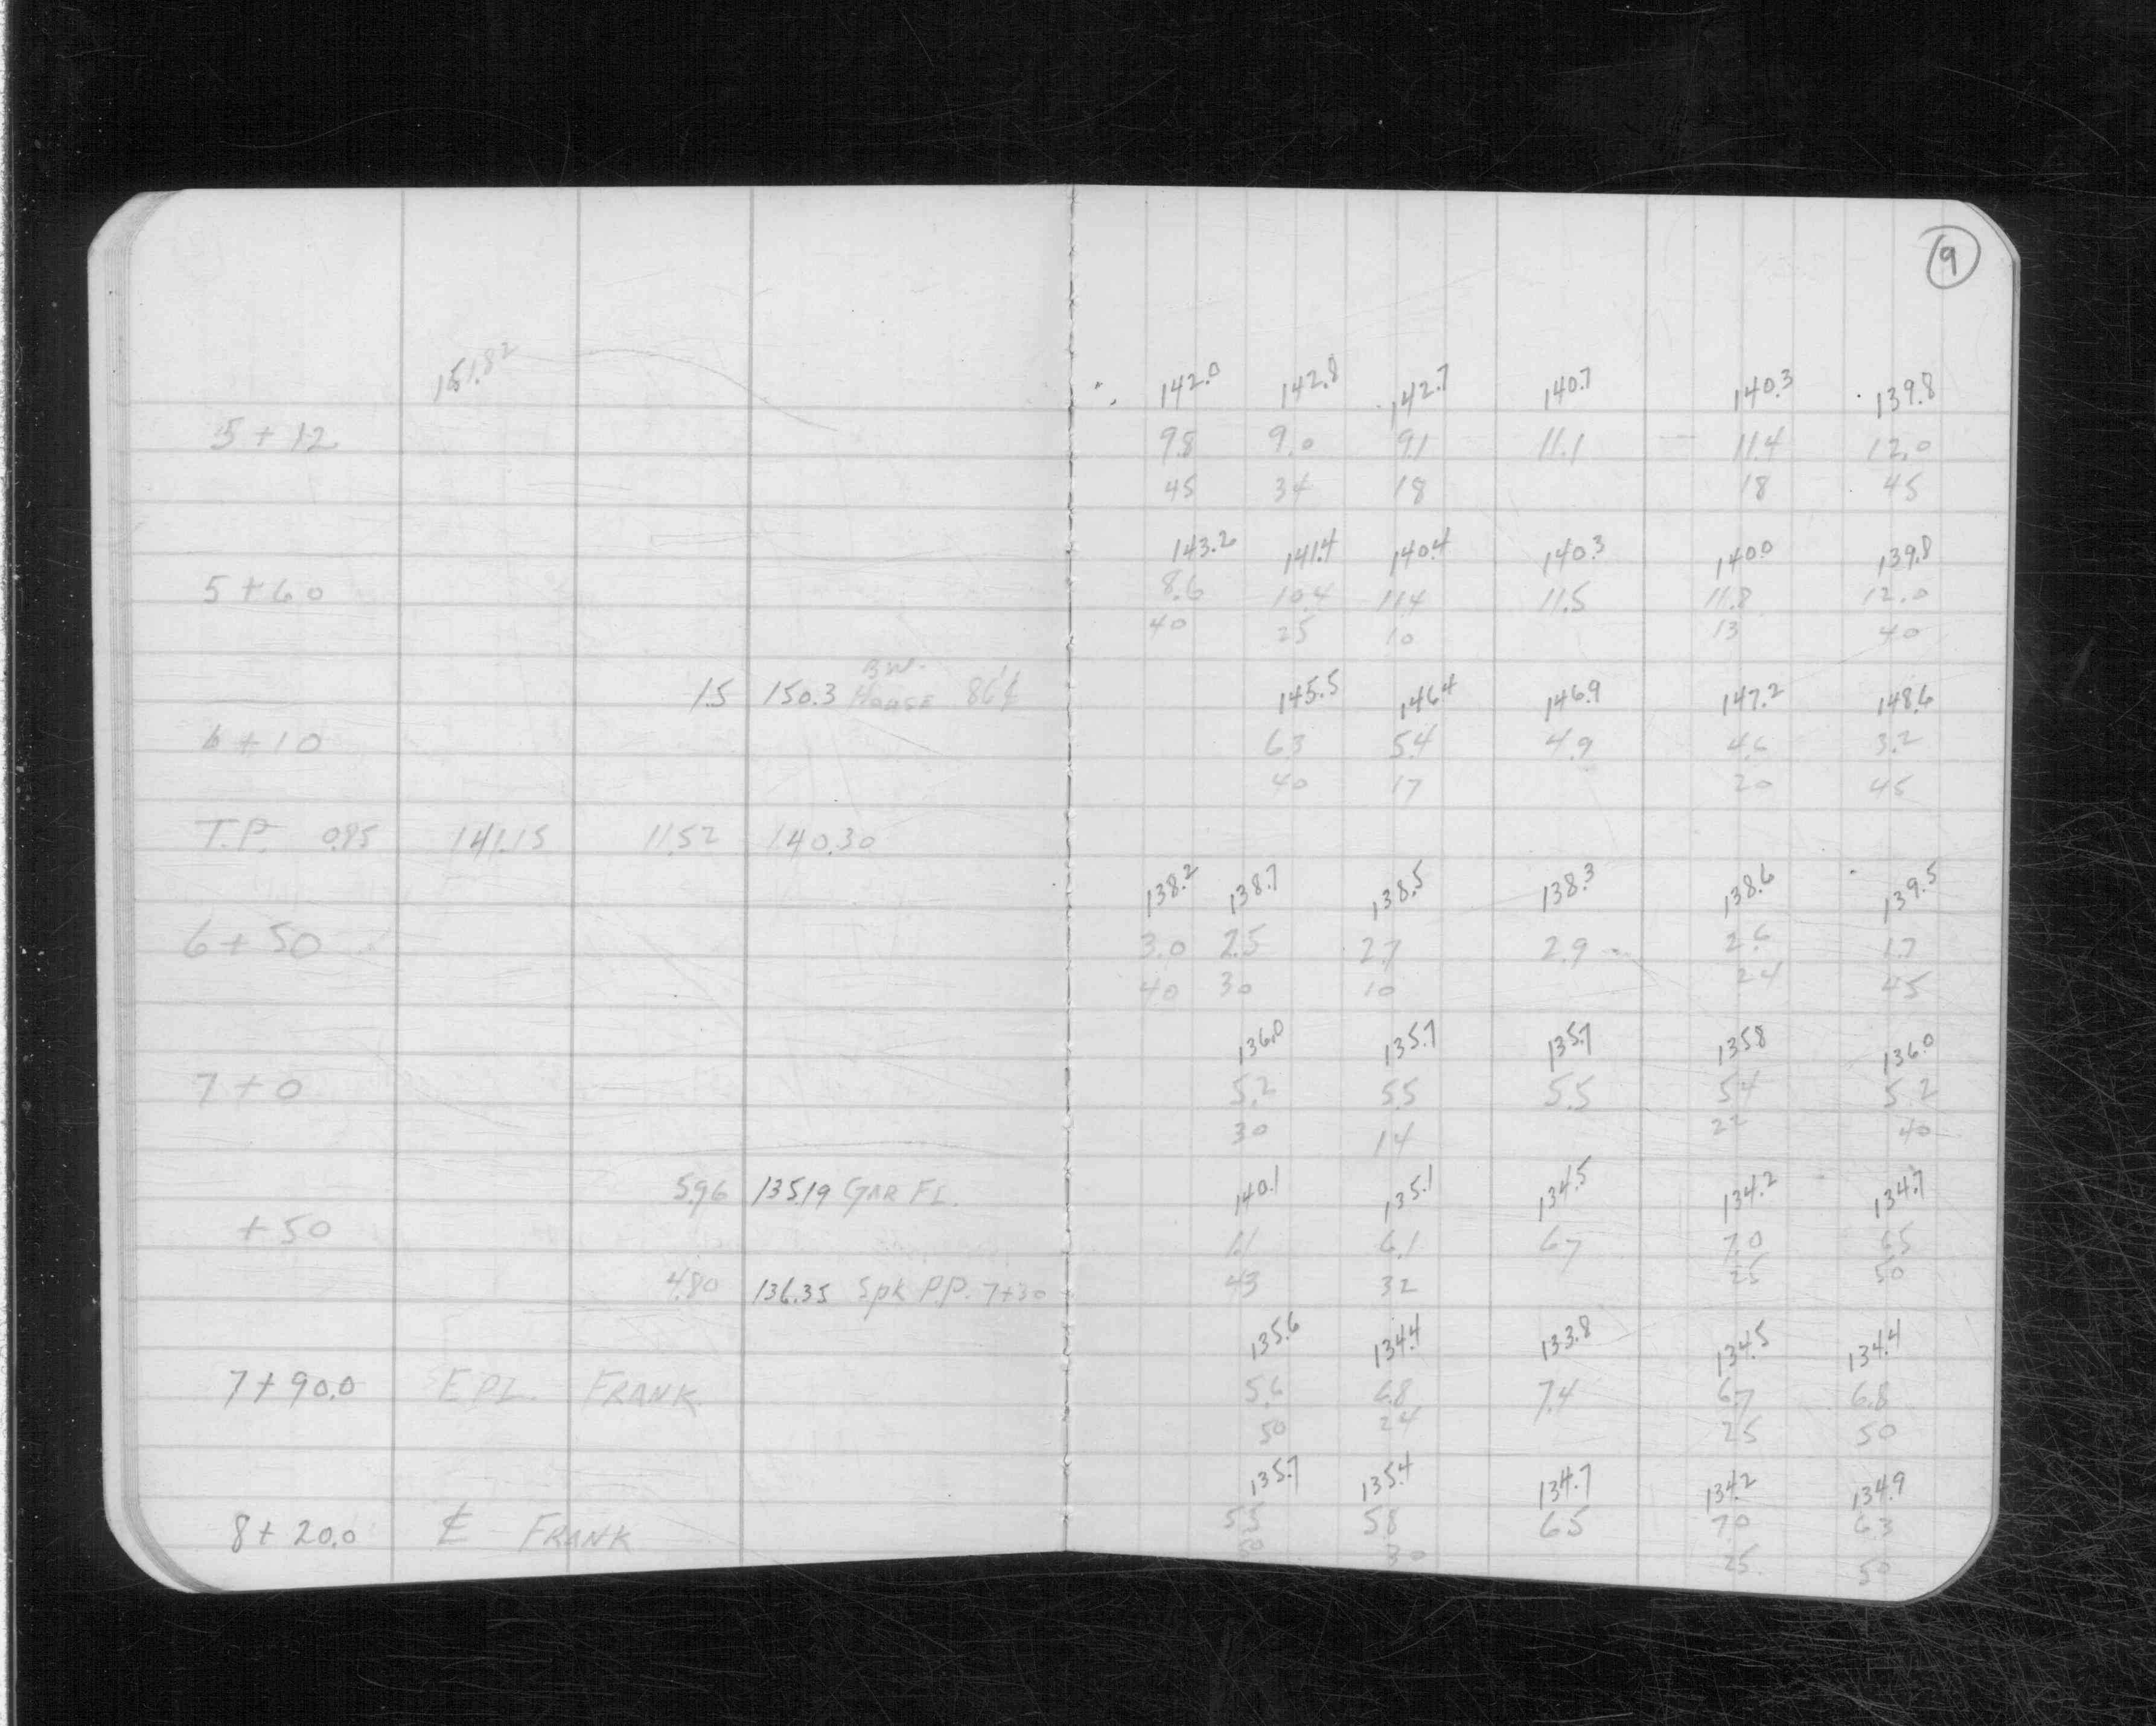 9
151.82 142.0 142.8 142.7 140.7 140.3 139.8
5+12 9.8 9.0 9.1 11.1 11.4 12.0
45 34 18 18 45
143.2 141.4 140.4 140.3 140.0 139.8
5+60 8.6 10.4 11.4 11.5 11.8 12.0
40 25 10 13 40
B.W.
1.5 150.3 House 86' ℄ 145.5 146.4 146.9 147.2 148.6
6+10 6.3 5.4 4.9 4.6 3.2
40 17 20 45
T.P. 0.85 141.15 11.52 140.30
138.2 138.7 138.5 138.3 138.6 139.5
6+50 3.0 2.5 2.7 2.9 2.6 1.7
40 30 10 24 45
136.0 135.7 135.7 135.8 136.0
7+0 5.2 5.5 5.5 5.4 5.2
30 14 22 40
5.96 135.19 GAR FL. 140.1 135.1 134.5 134.2 134.7
+50 1.1 6.1 6.7 7.0 6.5
4.80 136.35 Spk P.P. 7+30 43 32 25 50
135.6 134.4 133.8 134.5 134.4
7+90.0 EPL. FRANK 5.6 6.8 7.4 6.7 6.8
50 24 25 50
135.7 135.4 134.7 134.2 134.9
8+20.0 ℄ FRANK 5.5 5.8 6.5 7.0 6.3
50 30 25 50